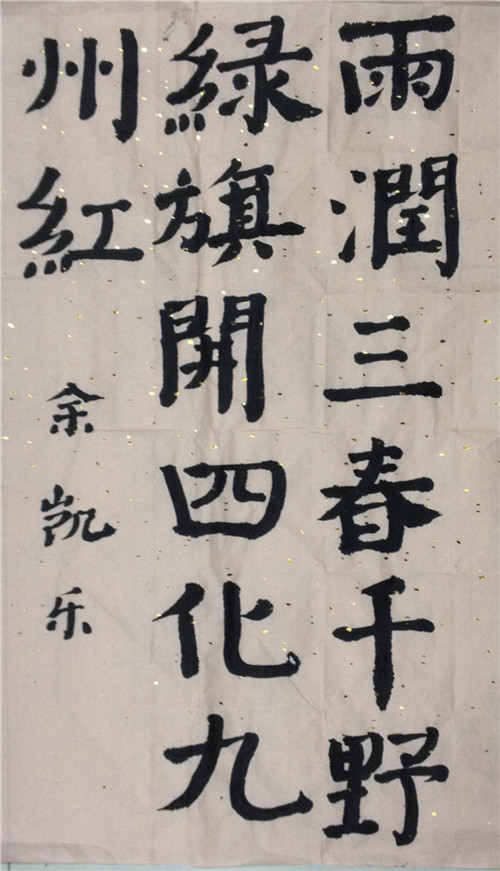 雨潤三春千野
綠旗開四化九
州紅
余凯乐